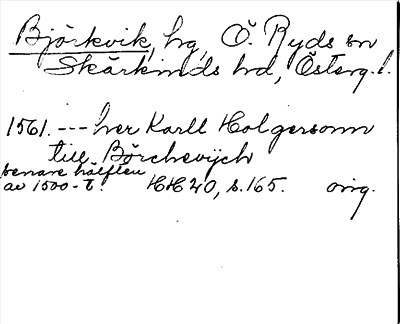 Björkvik, hg, Ö. Ryds sn
Skärkinds hd, Österg. l.
1561. --- her Karll Holgersonn
till Börchevijch
senare hälften
av 1500-t. HH 20, s. 165. orig.